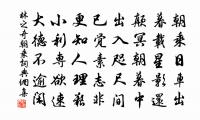 朝乘日車出
暮戴星影還
顛冥朝暮際
出入咫尺間
已覺素志非
更知人理艱
小利專欲速
大德不逾閑
林之奇朝乘詞典網集